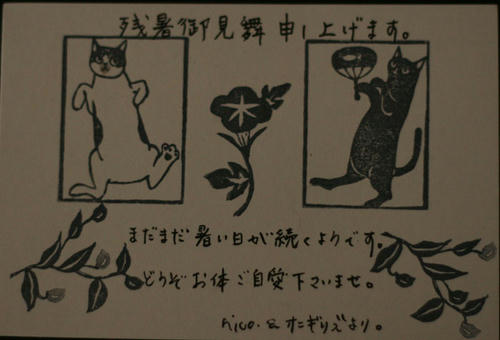 残暑御見舞申し上げます。
まだまだ暑い日が続くようです。
どうぞお体ご自愛下さいませ。
nico. & オニギリズより。